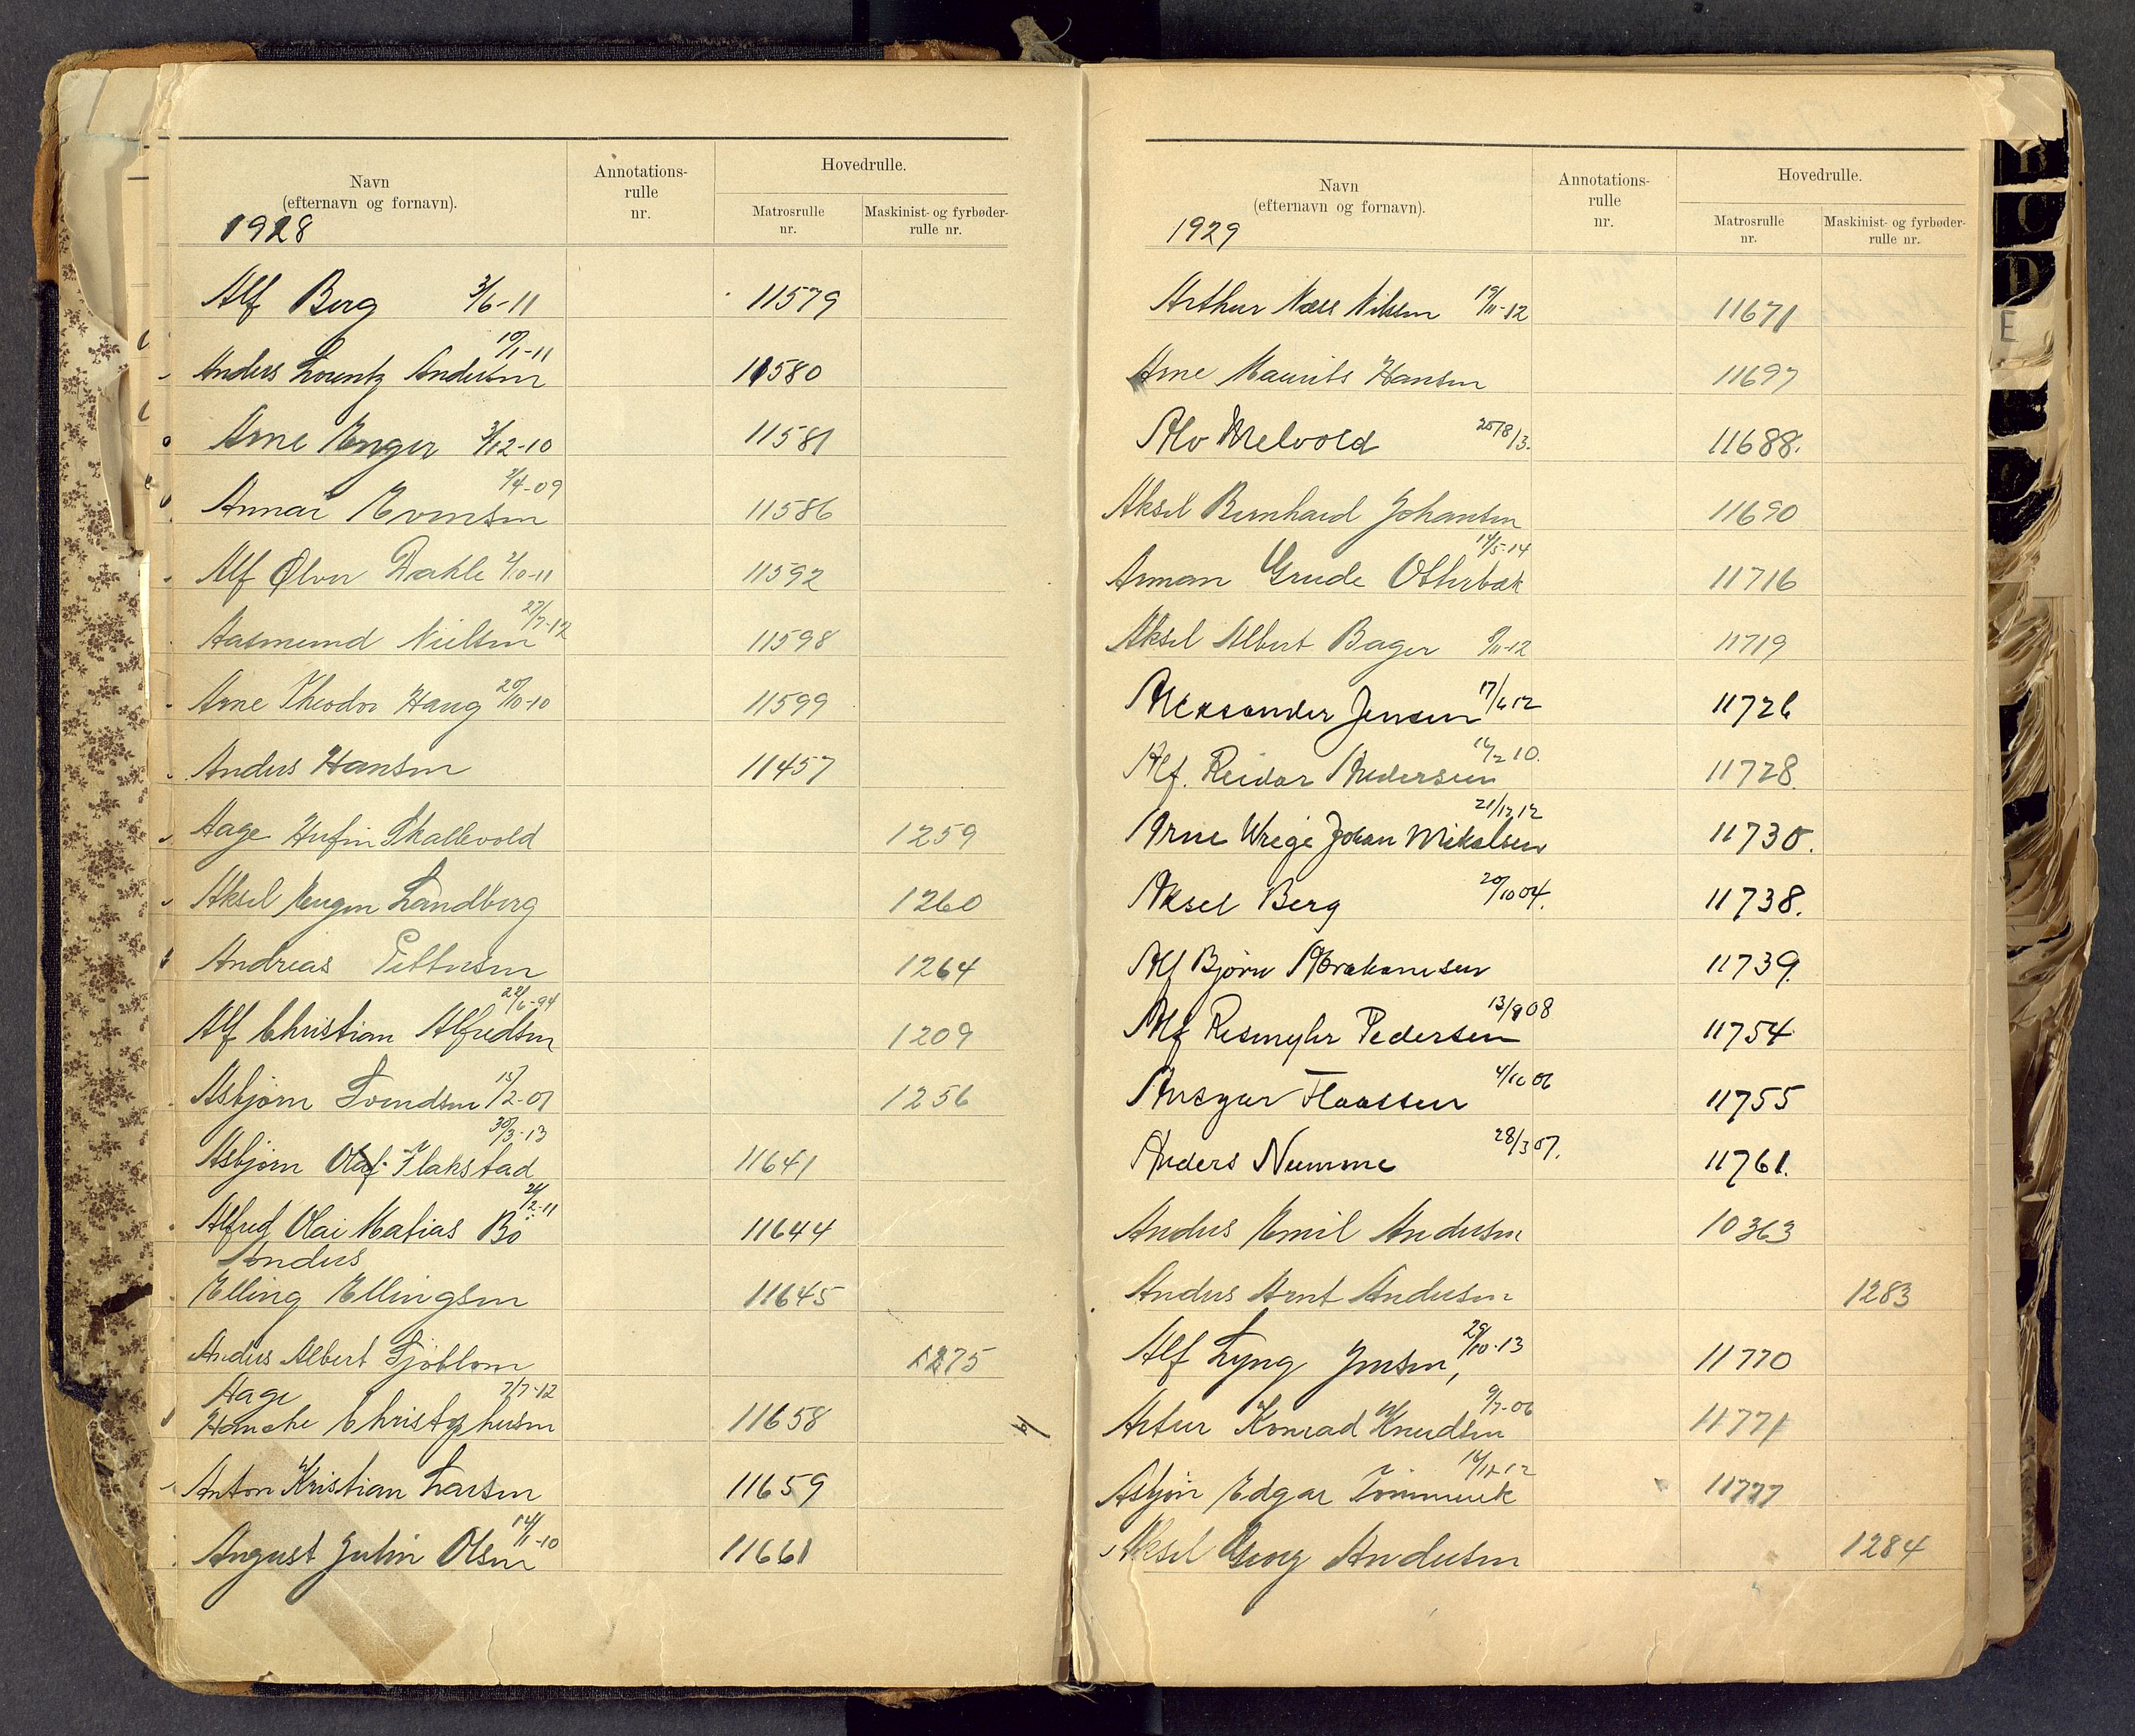 Navn
(efternavn og fornavn).
Annotations-
rulle
nr.
Hovedrulle.
Matrosrulle
nr.
Maskinist- og fyrbøder-
rulle nr.
1928
Alf Berg 3/6-11 11579
Anders Lorentz Andersen 10/1-11 11580
Arne Enger 3/12-10 11581
Annar Evensen 2/4-09 11586
Alf Ølver Dahle 2/10-11 11592
Aasmund Nielsen 27/7-12 11598
Arne Theodor Haug 20/10-10 11599
Anders Hansen 11457
Aage Skallevold 1259
Aksel Eugen Landberg 1260
Andreas Pettersen 1264
Alf Christian Alfredsen 22/6-94 1209
Asbjørn Svendsen 15/2-07 1256
Asbjørn Olaf Flakstad 30/3-13 11641
Alfred Olai Matias Bö 24/2-11 11644
Anders
Elling Ellingsen 11645
Anders Albert Sjöblom 1275
Aage 7/7-12
Hancke Christophersen 11658
Anton Kristian Larsen 11659
August Julin Olsen 14/11-10 11661
Navn
(efternavn og fornavn).
Annotations-
rulle
nr.
Hovedrulle.
Matrosrulle
nr.
Maskinist- og fyrbøder-
rulle nr.
1929
Arthur Næss Nilsen 19/11-12 11671
Arne Maurits Hansen 11697
Alv Melvold 25/8 13. 11688.
Aksel Bernhard Johansen 11690
Arman Grude Otterbæk 14/5-14 11716
Aksel Albert Bager 9/11-12 11719
Alexander Jensen 17/6 12 11726
Alf. Reidar Andersen 16/2 10. 11728.
Arne Wrege Johan Mikalsen 21/12 12 11730.
Aksel Berg 20/10 04. 11738.
Alf Bjørn Abrahamsen 11739.
Alf Pedersen 13/9 08 11754
Ansgar Flaatten 4/10 06 11755
Anders Numme 28/3 07. 11761.
Anders Emil Andersen 10363
Anders Arnt Andersen 1283
Alf Lyng Jensen, 29/10-13 11770
Artur Konrad Knudsen 9/7-06 11771
Asbjörn Edgar 16/12-12 11777
Aksel Georg Andersen 1284
B
C
D
E